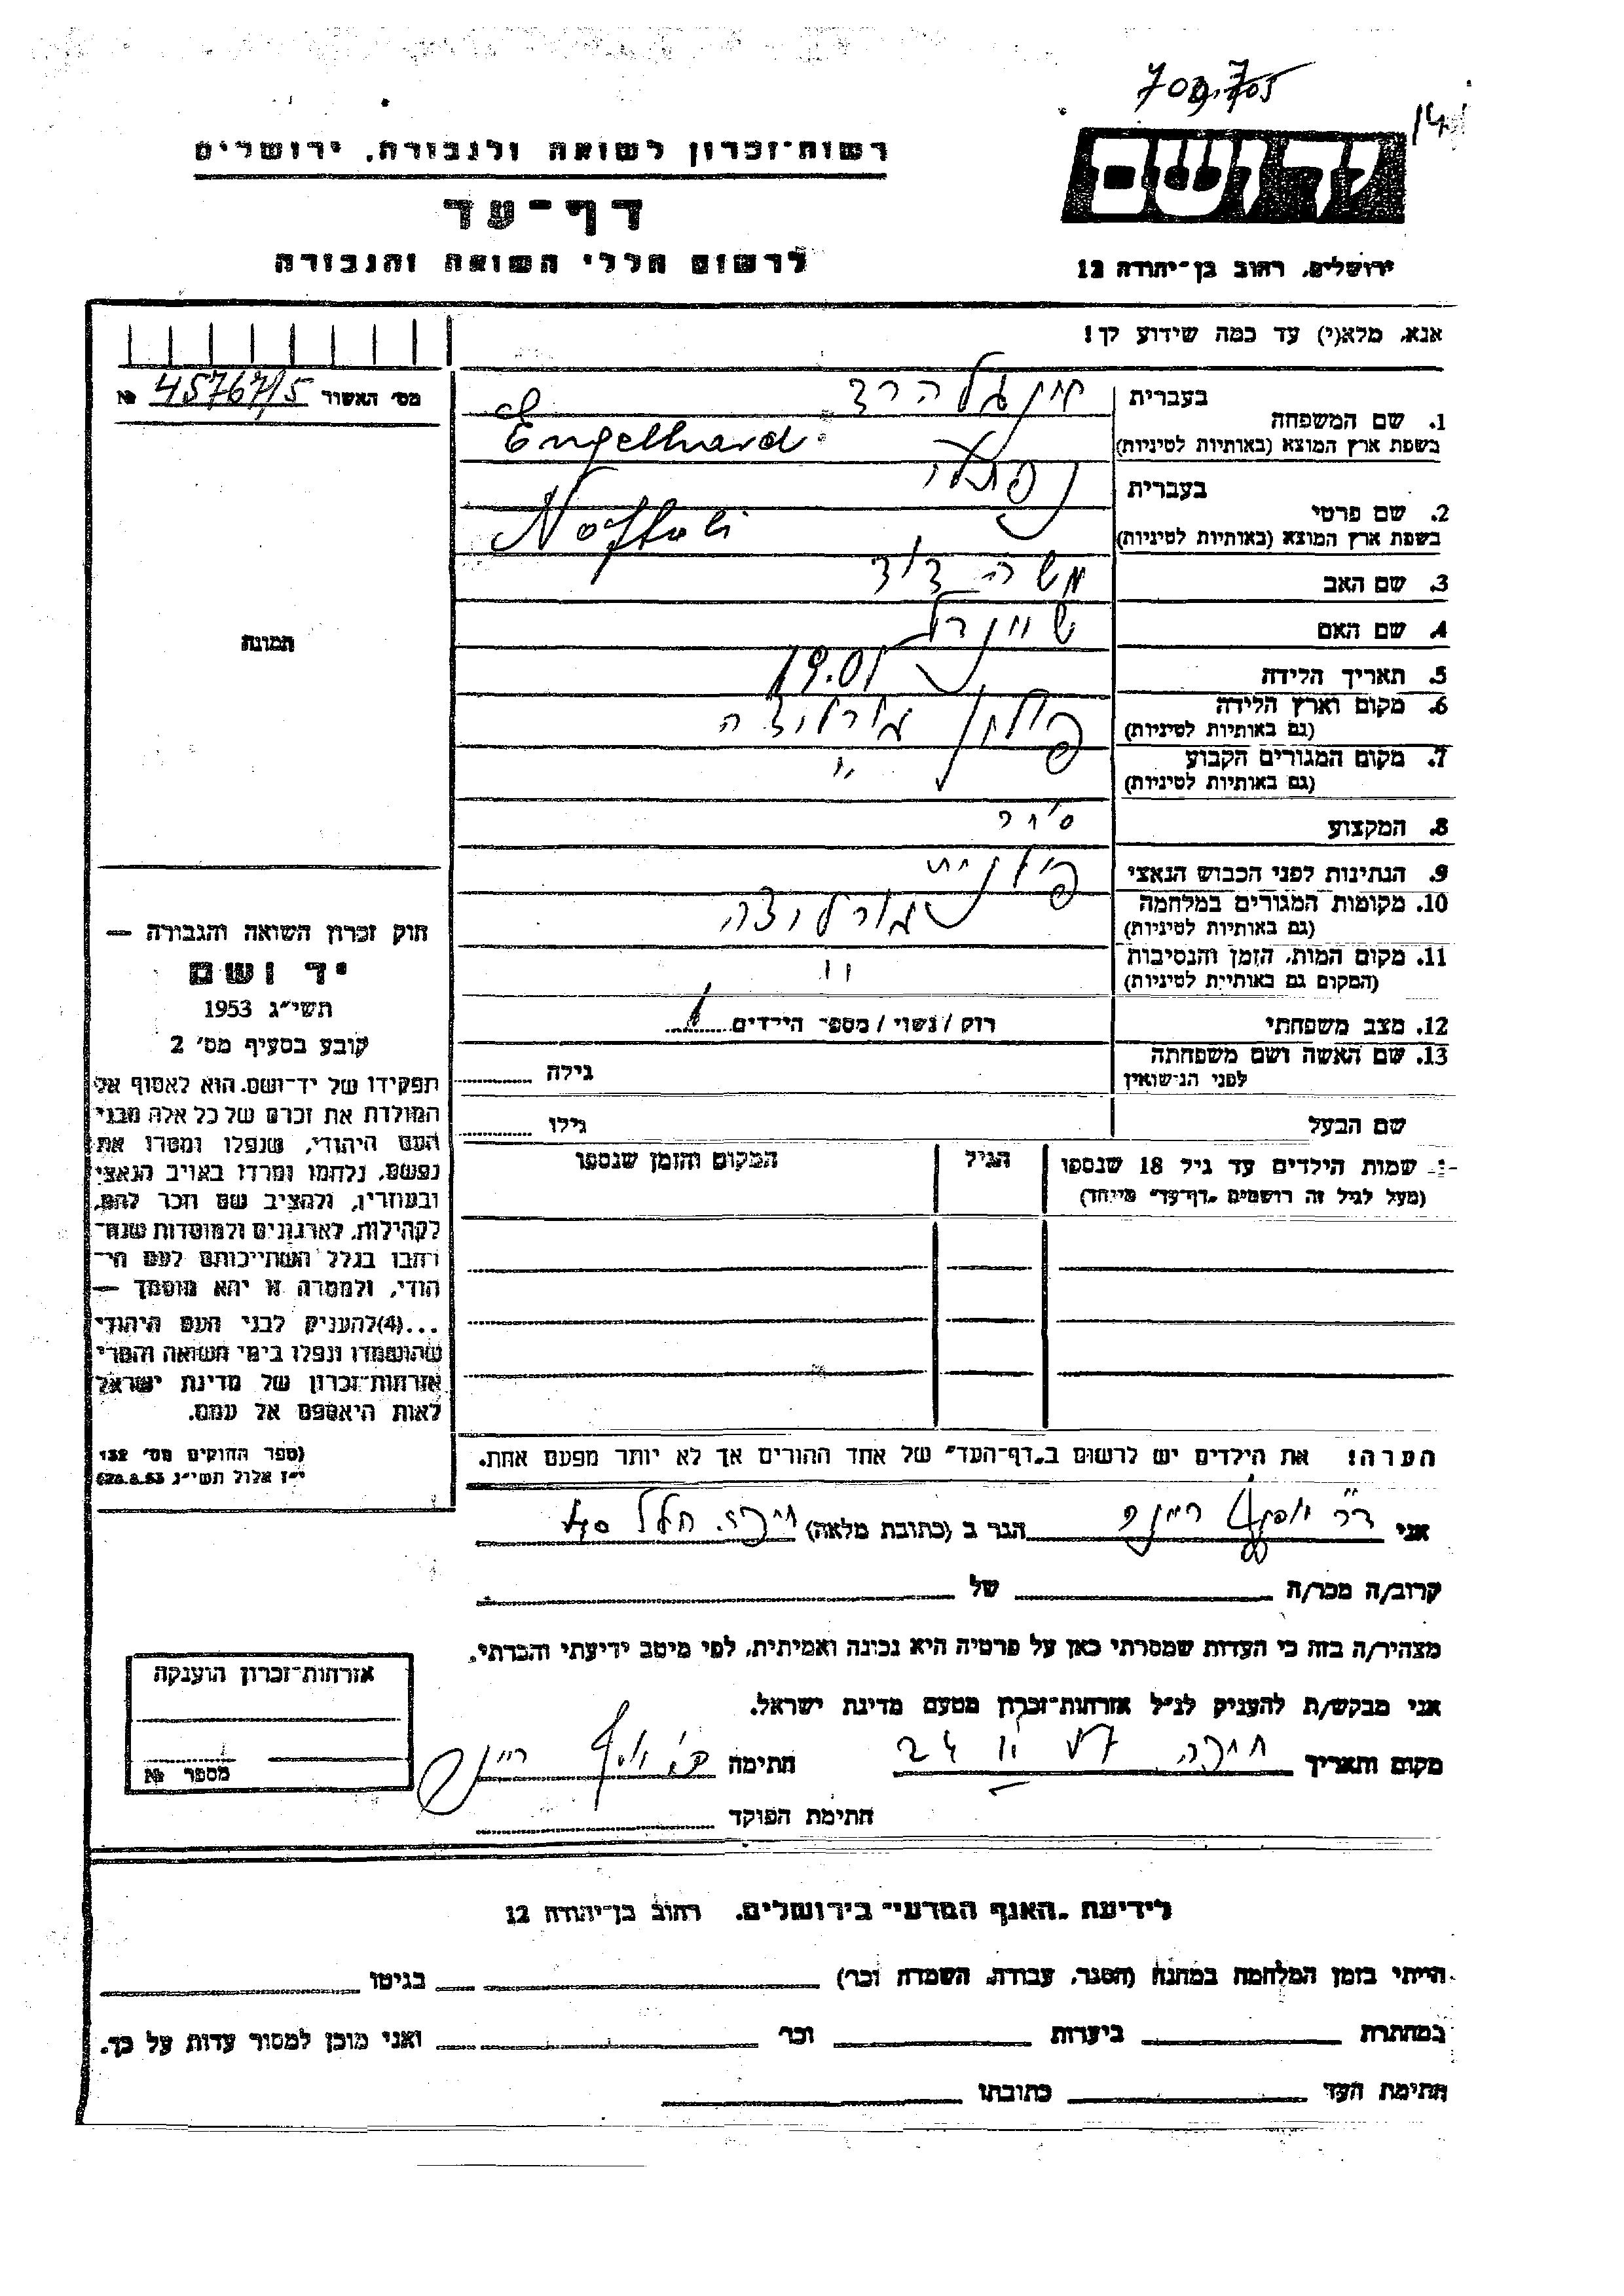 רשות־זכרון לשואה ולגבורה, ירושלים
דף־עד
לרשום חללי השואה והגבורה
יד ושם
ירושלים, רחוב בן־יהודה 12
אנא, מלא(י) עד כמה שידוע לך!
מס׳ האשור 45767/5 №
1. שם המשפחה בעברית
בשפת ארץ המוצא (באותיות לטיניות) Engelhard
2. שם פרטי בעברית נפתלי
בשפת ארץ המוצא (באותיות לטיניות) Naftali
3. שם האב משה דוד
4. שם האם שיינדל
5. תאריך הלידה 1901
6. מקום וארץ הלידה פולין גורליצה
(גם באותיות לטיניות)
7. מקום המגורים הקבוע "
(גם באותיות לטיניות)
8. המקצוע סוחר
9. הנתינות לפני הכבוש הנאצי פולנית
10. מקומות המגורים במלחמה גורליצה
(גם באותיות לטיניות)
11. מקום המות, הזמן והנסיבות "
(המקום גם באותיות לטיניות)
12. מצב משפחתי רוק/נשוי/מספר הילדים
13. שם האשה ושם משפחתה
לפני הנישואין
גילה
שם הבעל גילו
שמות הילדים עד גיל 18 שנספו הגיל המקום והזמן שנספו
(מעל לגיל זה רושמים „דף־עד" מיוחד)
תמונה
חוק זכרון השואה והגבורה —
יד ושם
תשי״ג 1953
קובע בסעיף מס׳ 2
תפקידו של יד־ושם, הוא לאסוף אל
המולדת את זכרם של כל אלה מבני
העם היהודי, שנפלו ומסרו את
נפשם, נלחמו ומרדו באויב הנאצי
ובעוזריו, ולהציב שם וזכר להם,
לקהילות, לארגונים ולמוסדות שנח־
רבו בגלל השתייכותם לעם הי־
הודי, ולמטרה זו יהא מוסמך —
...(4)להעניק לבני העם היהודי
שהושמדו ונפלו בימי השואה והמרי
אזרחות־זכרון של מדינת ישראל
לאות היאספם אל עמם.
(ספר החוקים מס׳ 132
י״ז אלול תשי״ג 28.8.53)
הערה! את הילדים יש לרשום ב„דף־העד" של אחד ההורים אך לא יותר מפעם אחת.
אני ד״ר הגר ב (כתובת מלאה) חיפה. 40
קרוב/ה מכר/ה של
מצהיר/ה בזה כי העדות שמסרתי כאן על פרטיה היא נכונה ואמיתית, לפי מיטב ידיעתי והכרתי.
אני מבקש/ת להעניק לנ״ל אזרחות־זכרון מטעם מדינת ישראל.
מקום ותאריך חיפה חתימה
חתימת הפוקד
אזרחות־זכרון הוענקה
מספר №
לידיעת „האגף המדעי" בירושלים. רחוב בן־יהודה 12
הייתי בזמן המלחמה במחנה (הסגר, עבודה, השמדה וכו׳) בגיטו
במחתרת ביערות וכו׳ ואני מוכן למסור עדות על כך.
חתימת העד כתובתו